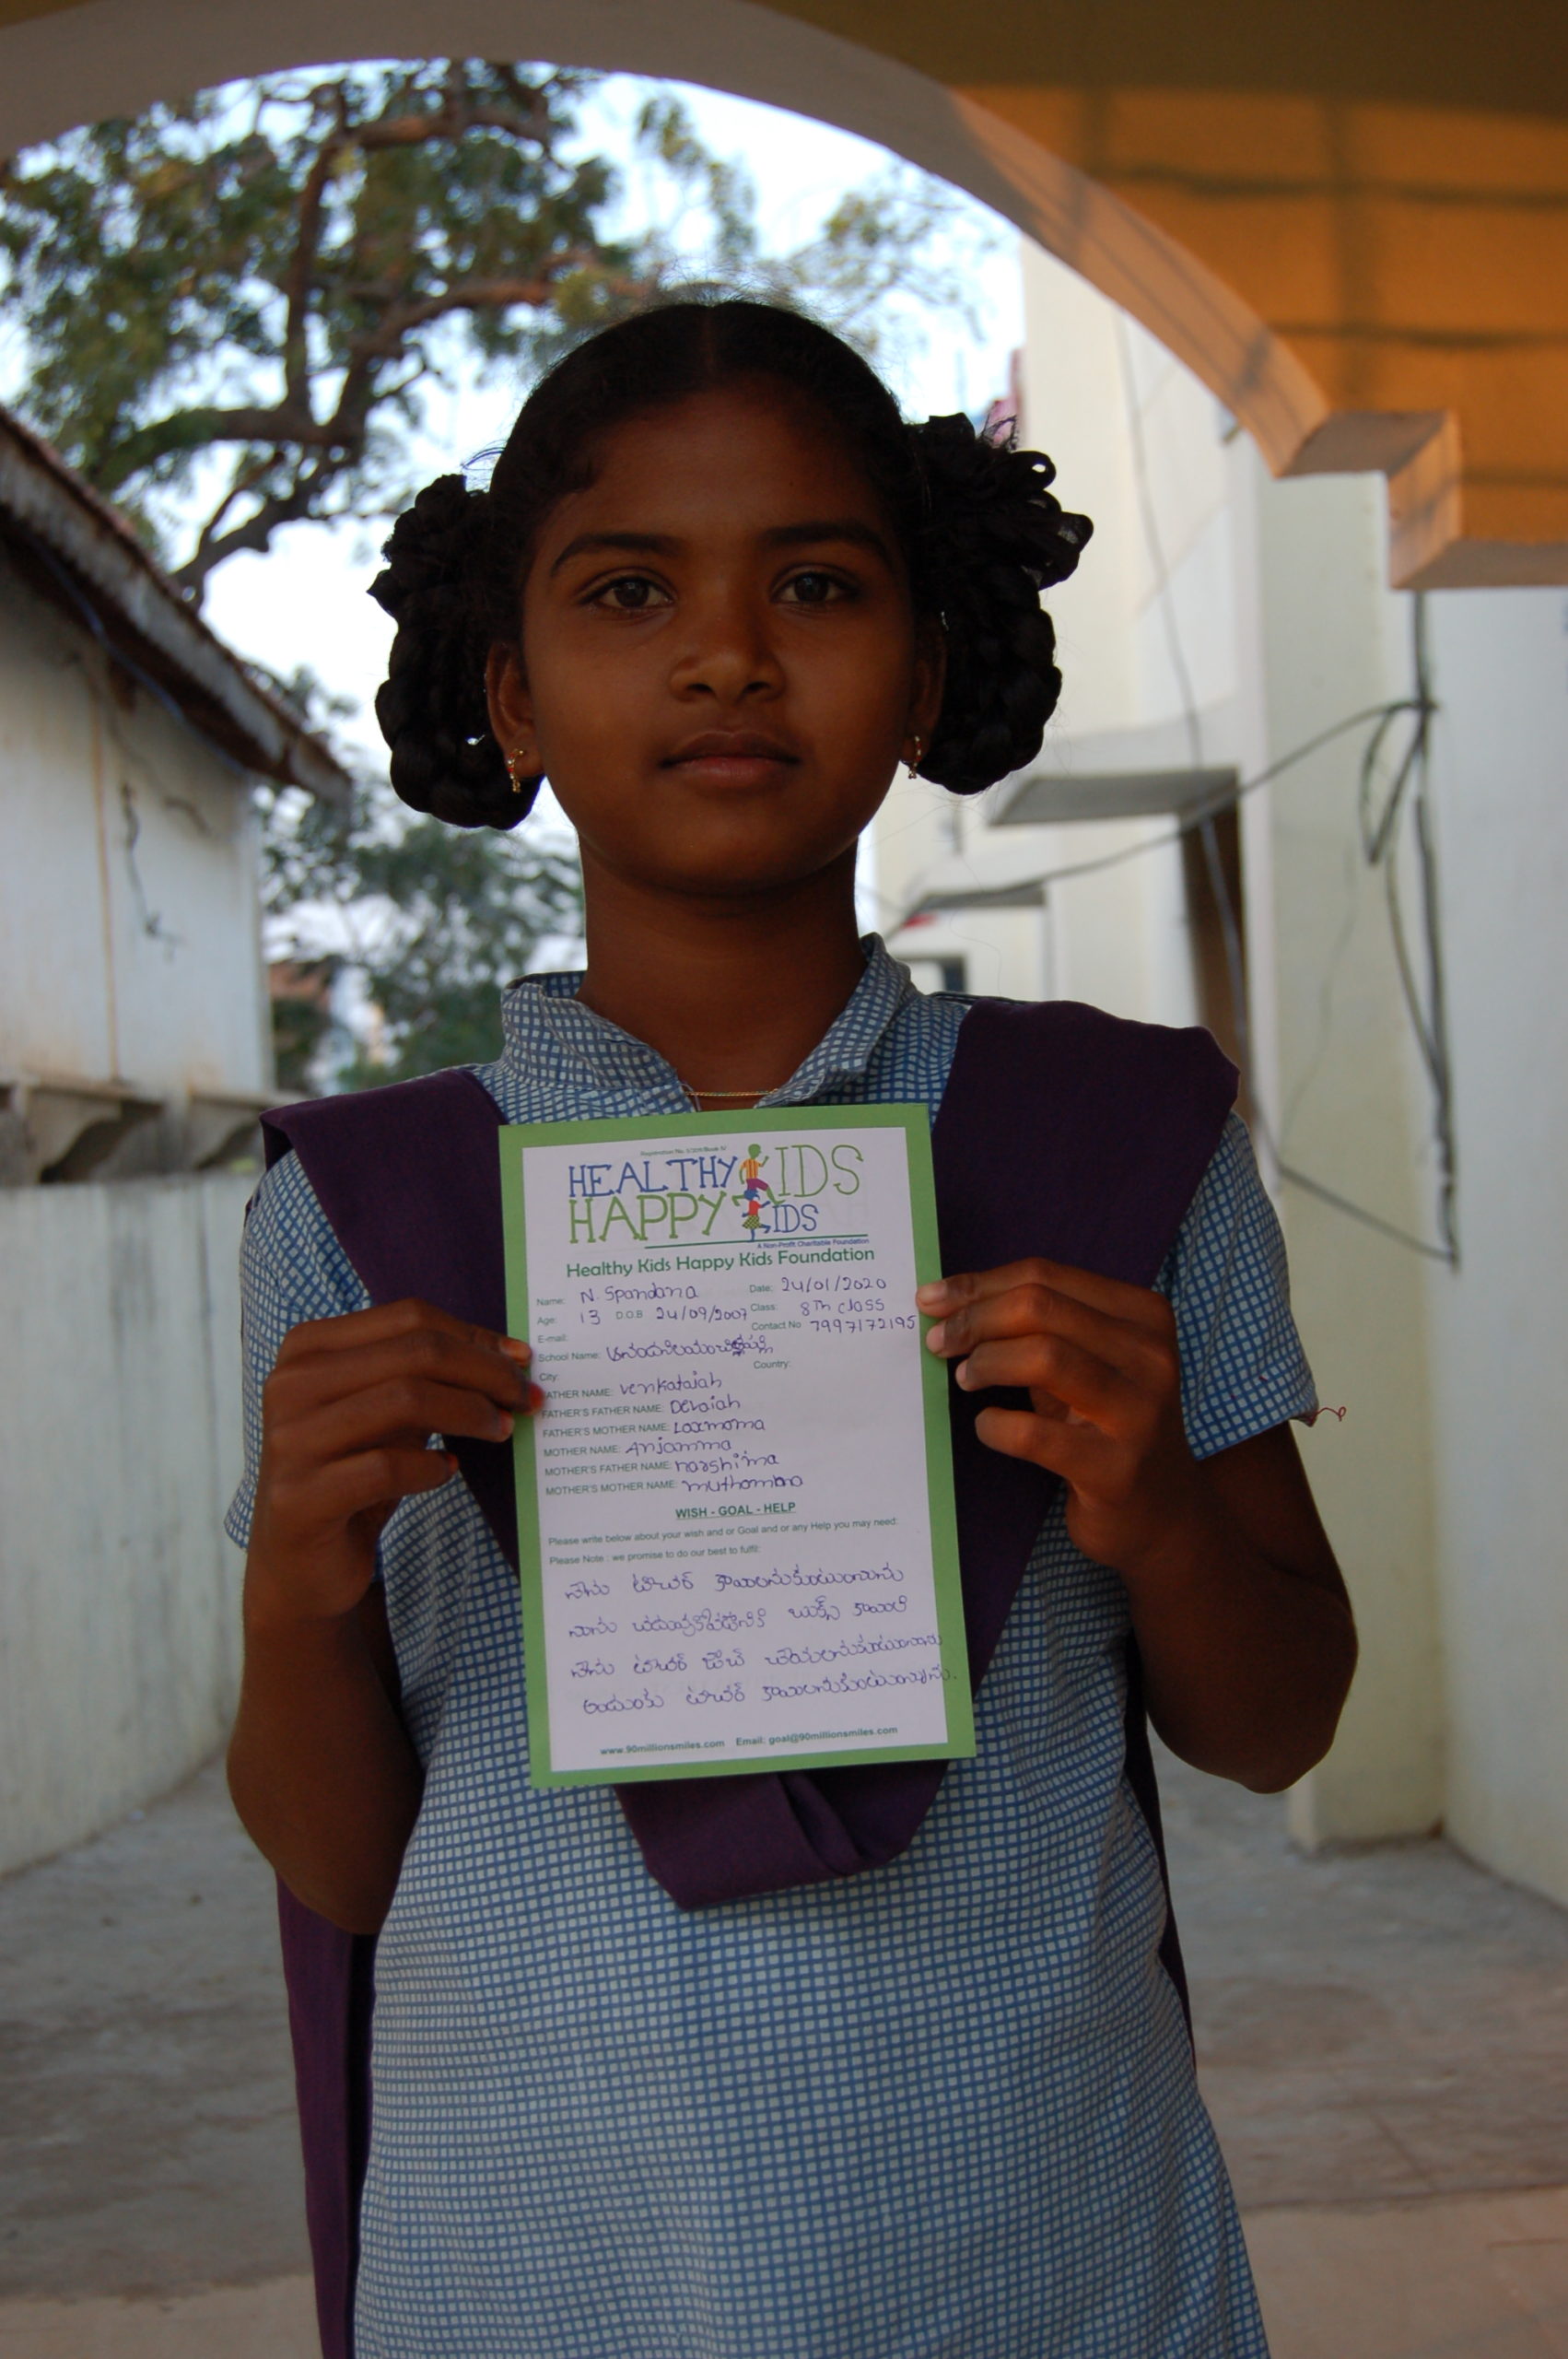 HEALTHY KIDS
HAPPY KIDS
A Non-Profit Charitable Foundation
Healthy Kids Happy Kids Foundation
Name: N. Spandana Date: 24/01/2020
Age: 13 D.O.B 24/09/2007 Class: 8Th class
E-mail: Contact No 7997172195
School Name:
City: Country:
FATHER NAME: venkataiah
FATHER'S FATHER NAME: Devaiah
FATHER'S MOTHER NAME: Laxmoma
MOTHER NAME: Anjamma
MOTHER'S FATHER NAME: narshima
MOTHER'S MOTHER NAME:
WISH - GOAL - HELP
Please write below about your wish and or Goal and or any Help you may need:
Please Note : we promise to do our best to fulfil:
నేను టీచర్ కావాలనుకుంటున్నాను
నాను చదువుకోవడానికి బుక్స్ కావాలి
నేను టీచర్ జాబ్ చేయాలనుకుంటున్నాను
అందుంకు టీచర్ కావాలనుకుంటున్నాను.
www.90millionsmiles.com Email: goal@90millionsmiles.com